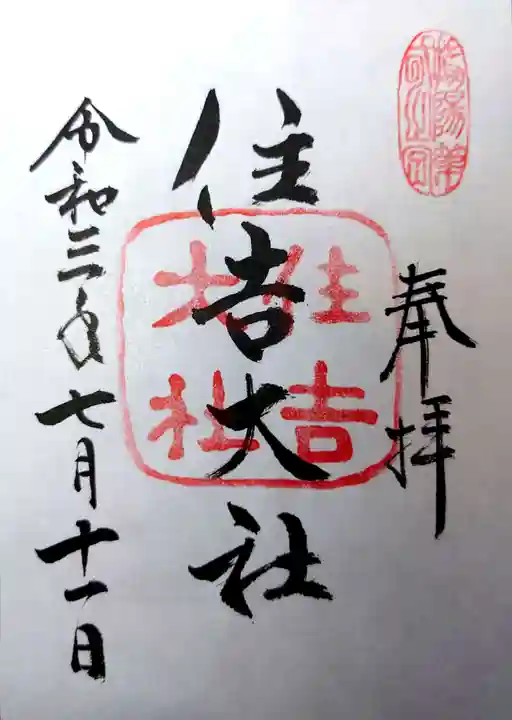 奉拝
住吉大社
住吉大社
令和三年七月十一日